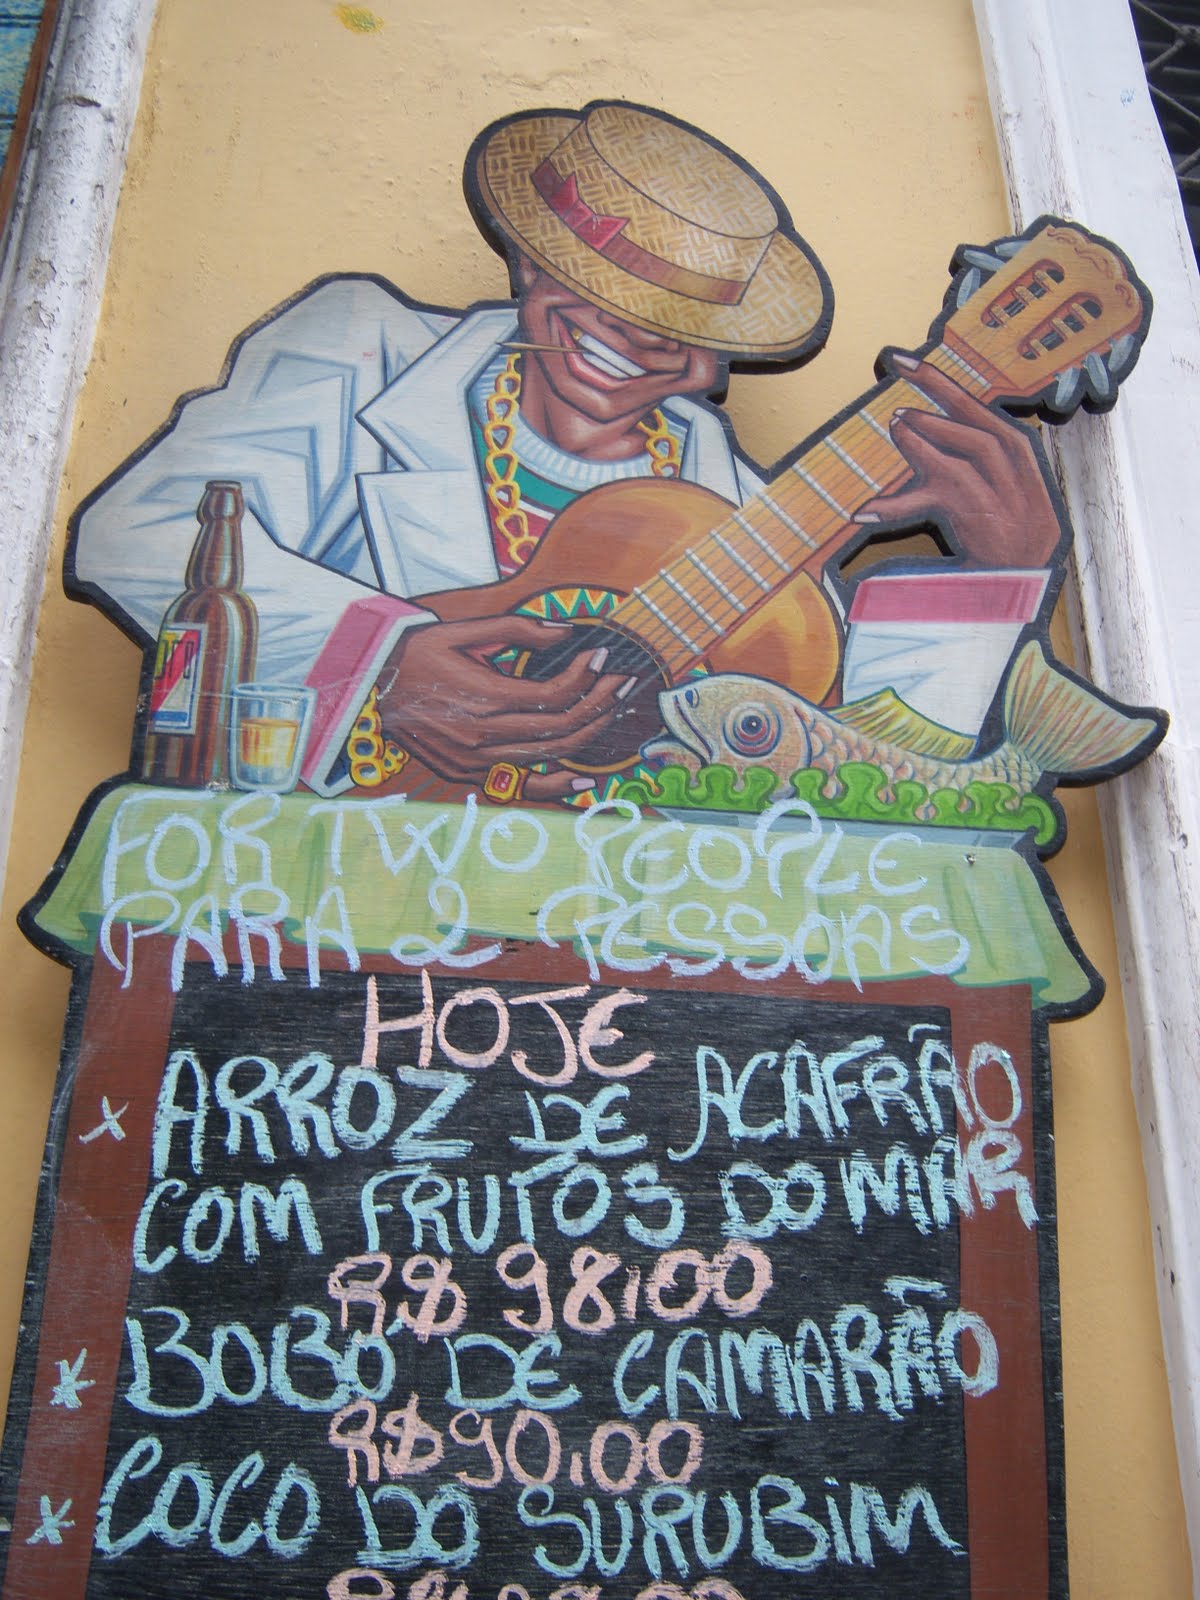 FOR TWO PEOPLE
PARA 2 PESSOAS
HOJE
x ARROZ DE ACAFRÃO
COM FRUTOS DO MAR
R$ 98,00
x BOBÓ DE CAMARÃO
R$90,00
x COCO DO SURUBIM